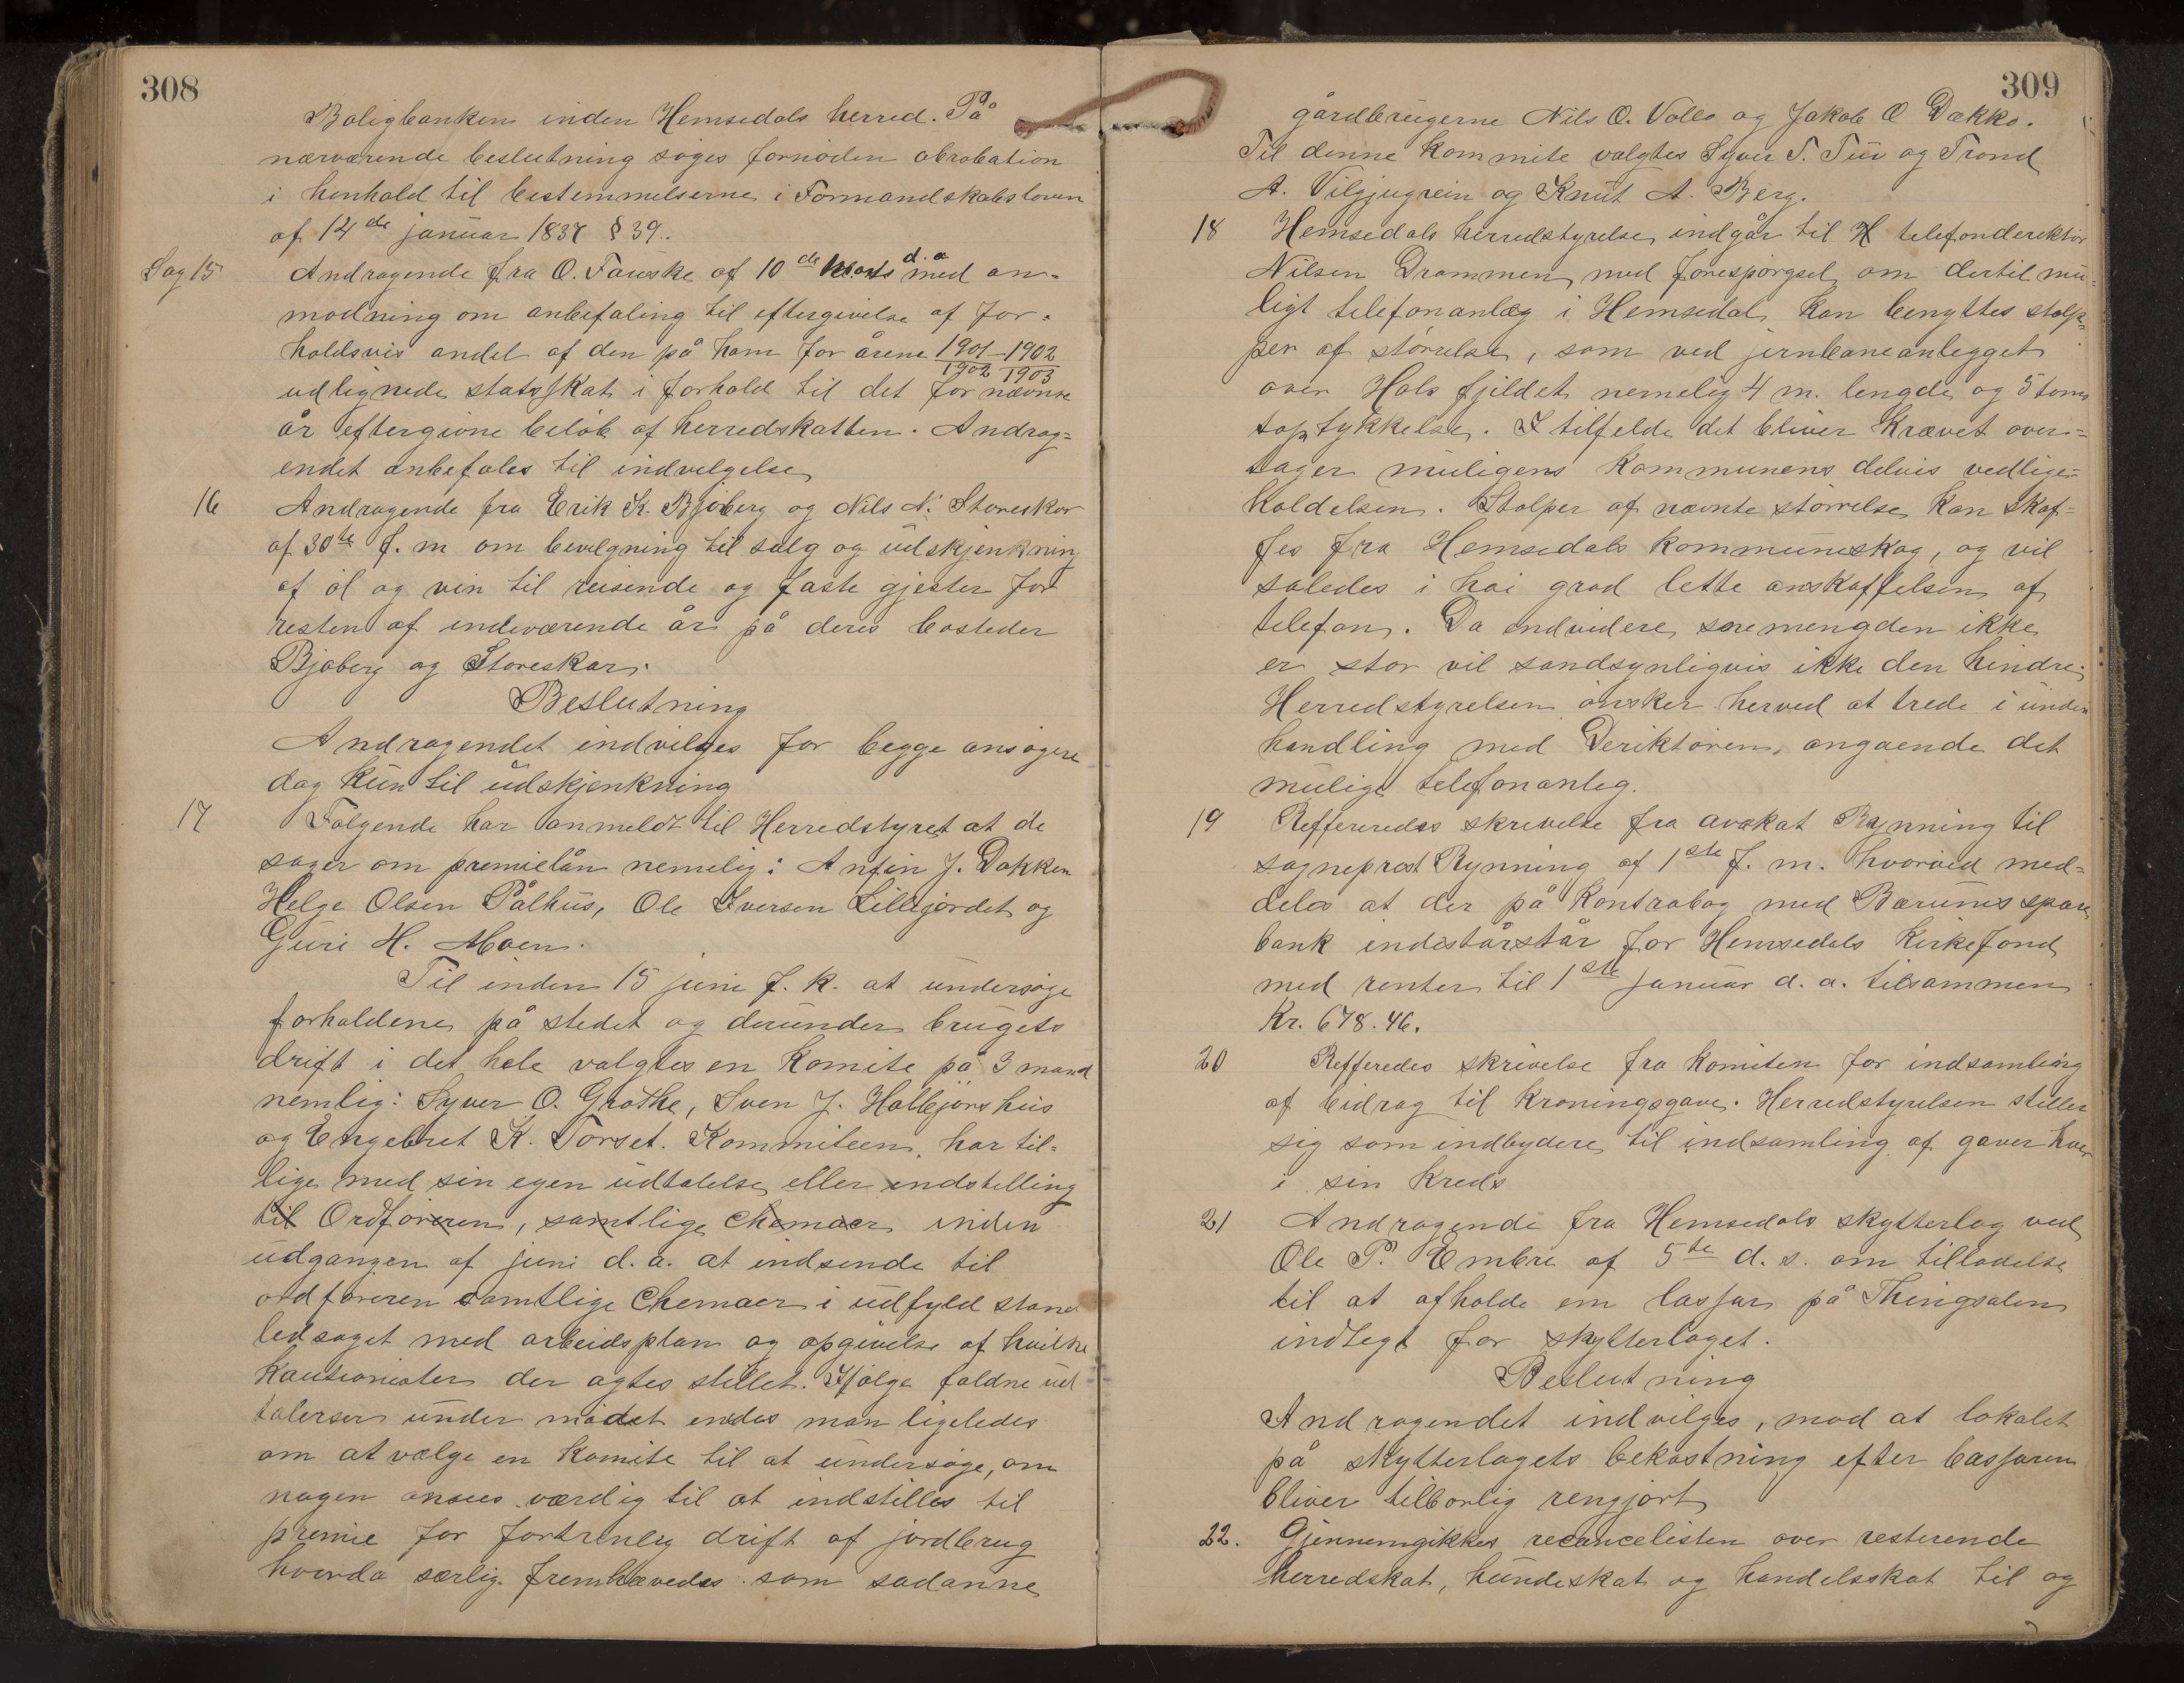 308
Boligbanken inden Hemsedals herred. På
nærværende beslutning søges fornøden abrobation
i henhold til bestemmelserne i Formandskabsloven
af 14de januar 1837 § 39.
Sag 15 Andragende fra O. Fauske af 10de Marts d. a med an-
modning om anbefaling til eftergivelse af for-
holdsvis andel af den på ham for årene 1901-1902
1902 1903
udlignede statsskat i forhold til det for nævnte
år eftergivne beløb af herredskatten. Andrag=
endet anbefales til indvilgelse
16 Andragende fra Erik K. Bjøberg og Nils N. Storeskar
af 30te f. m om bevilgning til salg og udskjenkning
af øl og vin til reisende og faste gjester for
resten af indeværende år på deres bosteder
Bjøberg og Storeskar.
Beslutning
Andragendet indvilges for begge ansøgere
dog kun til udskjenkning
17 Følgende har anmeldt til Herredstyret at de
søger om premielån nemelig: Anfin J. Dokken
Helge Olsen Pålhus, Ole Iversen Lillejordet og
Guri H. Moen.
Til inden 15 juni f. k. at undersøge
forholdene på stedet og derunder brugets
drift i det hele valgtes en komite på 3 mand
nemlig: Syver O. Grøthe, Sven J. Halbjørnshus
og Engebret K. Torset. Kommiteen, har til=
lige med sin egen udtalelse eller indstilling
til Ordføreren, samtlige Chemaer inden
udgangen af juni d. a. at indsende til
ordføreren samtlige Chemaer i udfyld stand
ledsaget med arbeidsplan og opgivelse af hvilke
kautionister der agtes stillet. Ifølge faldne ud
talerser under mødet endes man ligeledes
om at vælge en komite til at undersøge, om
nogen ansees værdig til at indstilles til
premie for fortrinlig drift af jordbrug
hvorda særlig fremhævedes som sadanne
309
gårdbrugerne Nils O. Vollo og Jakob O Dækko.
Til denne kommite valgtes Syver T. Tuv og Trond
A. Vilgjugrein og Knut A. Berg.
18 Hemsedals herredstyrelse indgår til H telefonderektør
Nilsen Drammen med forespørgsel om dertil mu-
ligt telefonanlæg i Hemsedal kan benyttes stolp=
per af størrelse, som ved jernbaneanlegget
over Hols fjeldet nemelig 4 m. lengde og 5 toms
toptykkelse. I tilfelde det bliver krævet over=
tager muligens Kommunens delvis vedlige=
holdelsen. Stolper af nævnte størrelse kan skaf=
fes fra Hemsedals kommuneskog, og vil
således i høi grad lette anskaffelsen af
telefon. Da endvidere snemengden ikke
er stor vil sandsynligvis ikke den hindre.
Herredstyrelsen ønsker herved at trede i under
handling med Deriktøren, angaende det
mulige telefonanleg.
19 Reffereredes skrivelse fra avokat Rynning til
sogneprest Rynning af 1ste f. m. hvorved med=
deles at der på kontrabog med Bærums spare
bank indestårstår for Hemsedals kirkefond
med renter til 1ste Januar d. a. tilsammen
Kr. 678.46.
20 Refferedes skrivelse fra komiten for indsamling
af bidrag til kroningsgave. Herredstyrelsen stiller
sig som indbydere til indsamling af gaver hver
i sin kreds
21 Andragende fra Hemsedals skytterlag ved
Ole P. Embre af 5te d. s. om tilladelse
til at afholde en bassar på Thingsalen
indtegt for skytterlaget.
Beslutning
Andragendet indvilges, mod at lokalet
på skytterlagets bekostning efter bassaren
bliver tilbørlig rengjort
22. Gjennemgikkes recancelisten over resterende
herredskat, hundeskat og handelsskat til og